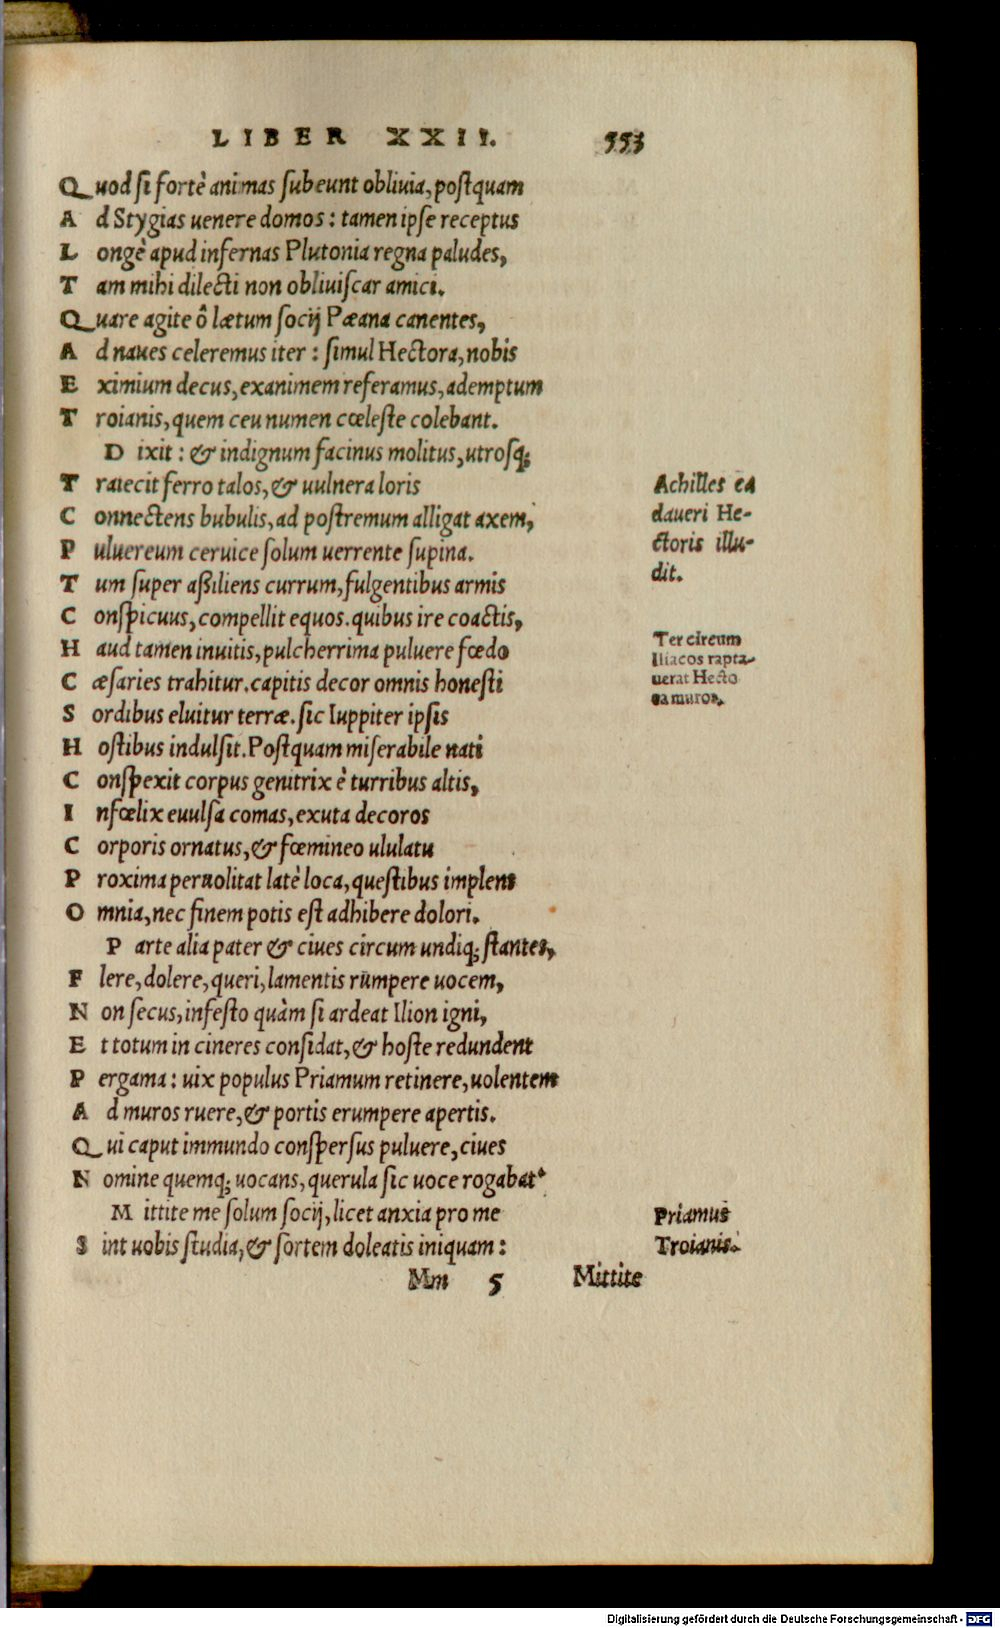 LIBER XXII. 553
Quod si fortè animas subeunt oblivia, postquam
Ad Stygias uenere domos: tamen ipse receptus
Longè apud infernas Plutonia regna paludes,
Tam mihi dilecti non obliuiscar amici.
Quare agite ô lætum socij Pæana canentes,
Ad naues celeremus iter: simul Hectora, nobis
Eximium decus, exanimem referamus, ademptum
Troianis, quem ceu numen cœleste colebant.
Dixit: & indignum facinus molitus, utrosq;
Traiecit ferro talos, & uulnera loris
Connectens bubulis, ad postremum alligat axem,
Puluereum ceruice solum uerrente supina.
Tum super aßiliens currum, fulgentibus armis
Conspicuus, compellit equos. quibus ire coactis,
Haud tamen inuitis, pulcherrima puluere fœdo
Cæsaries trahitur. capitis decor omnis honesti
Sordibus eluitur terræ. sic Iuppiter ipsis
Hostibus indulsit. Postquam miserabile nati
Conspexit corpus genitrix è turribus altis,
Infœlix euulsa comas, exuta decoros
Corporis ornatus, & fœmineo ululatu
Proxima peruolitat latè loca, questibus implens
Omnia, nec finem potis est adhibere dolori.
Parte alia pater & ciues circum undiq; stantes,
Flere, dolere, queri, lamentis rūmpere uocem,
Non secus, infesto quàm si ardeat Ilion igni,
Et totum in cineres considat, & hoste redundent
Pergama: uix populus Priamum retinere, uolentem
Ad muros ruere, & portis erumpere apertis.
Qui caput immundo conspersus puluere, ciues
Nomine quemq; uocans, querula sic uoce rogabat.
Mittite me solum socij, licet anxia pro me
Sint uobis studia, & sortem doleatis iniquam:
Mm 5 Mittite
Achilles ca
daueri He-
ctoris illu-
dit.
Ter circum
Iliacos rapta-
uerat Hecto
ea muros.
Priamus
Troianis.
Digitalisierung gefördert durch die Deutsche Forschungsgemeinschaft - DFG